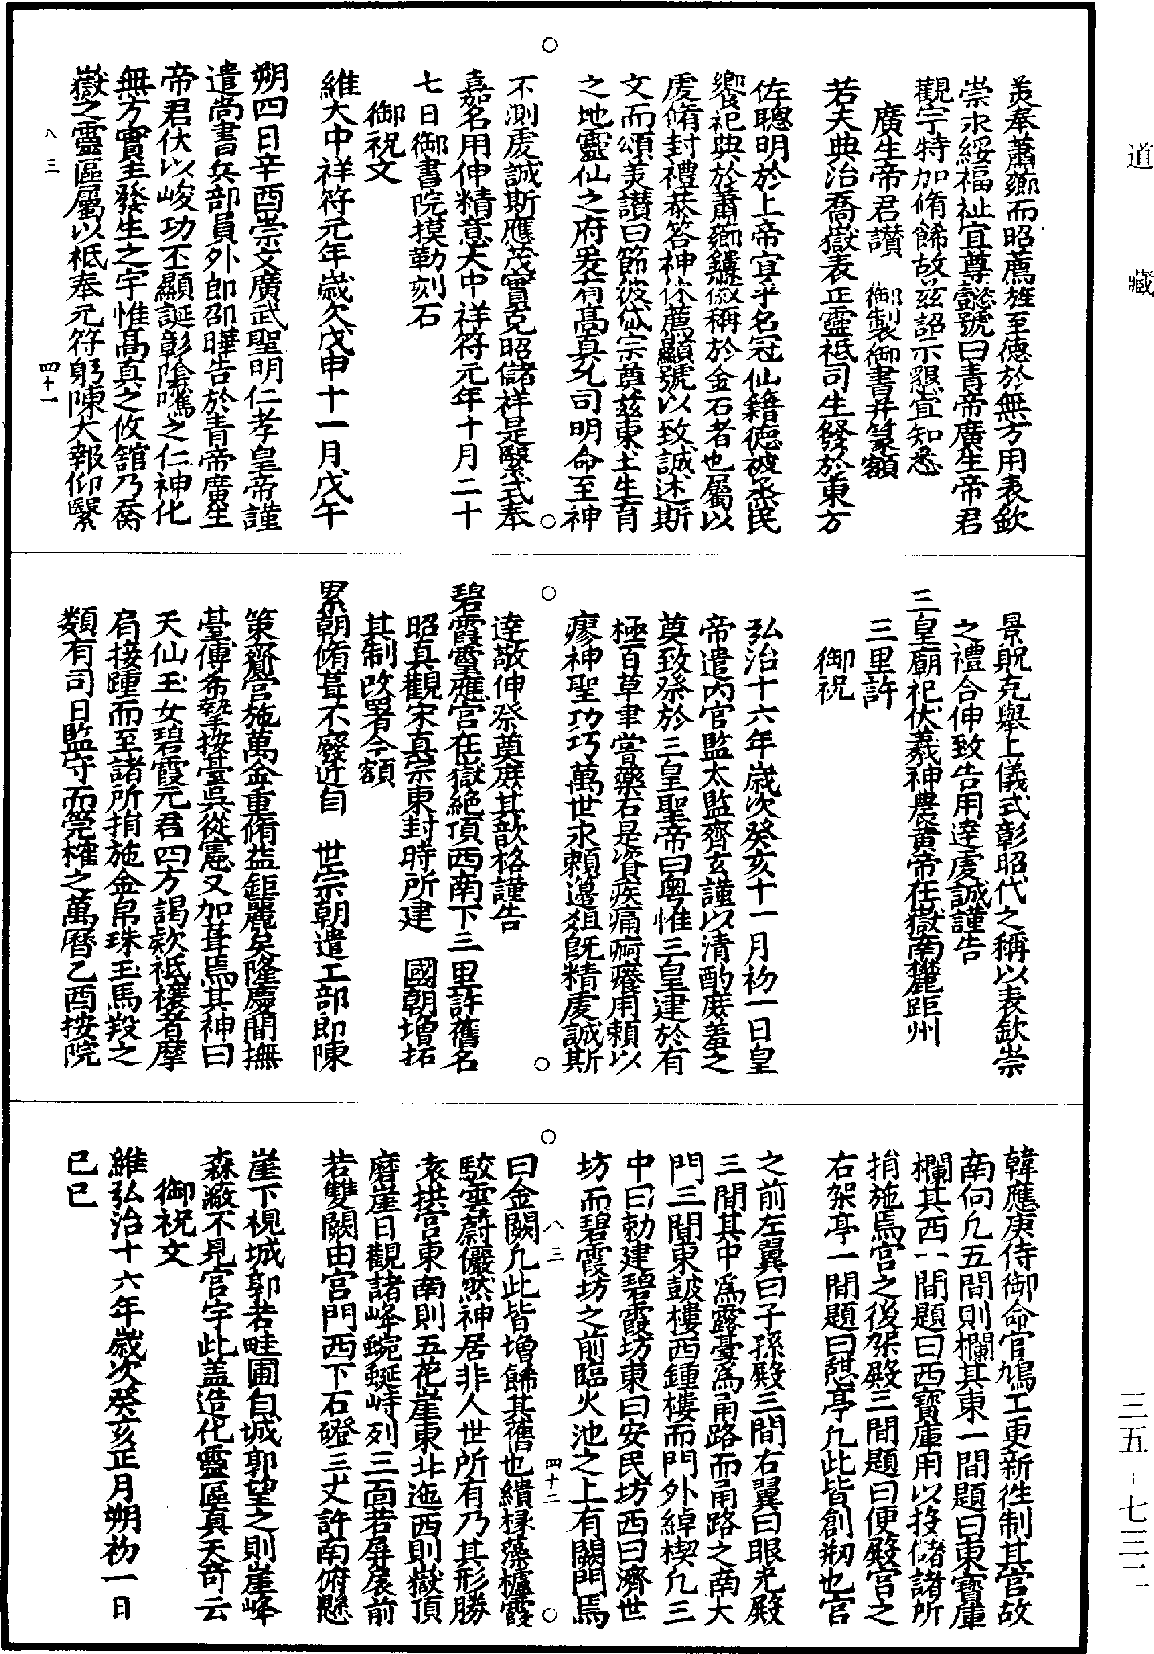 羙奉蕭薌而昭薦旌至德於無方用表欽
崇永綏福祉宜尊懿號曰青帝廣生帝君
觀宇特加脩餙故兹詔示懇宜知悉
廣生帝君讃　御製御書并篆額
若夫典治喬嶽表正靈祗司生發於東方
佐聰明於上帝寔乎名冠仙籍德被烝民
饗祀典於蕭薌鏤徽稱於金石者也屬以
虔脩封禮恭答神休薦顯號以致誠述斯
文而頌羙讃曰節彼岱宗奠兹東土生育
之地靈仙之府爰有高真允司明命至神
不測虔誠斯應茂實克昭儲祥是繫式奉
嘉名用伸精意大中祥符元年十月二十
七日御書院摸勒刻石
御祝文
維大中祥符元年歲次戊申十一月戊午
朔四日辛酉崇文廣武聖明仁孝皇帝謹
遣尚書兵部員外郎邵曄告於青帝廣生
帝君伏以峻功丕顯誕彰陰騭之仁神化
無方實主發生之宇惟高真之攸舘乃喬
嶽之靈區屬以祗奉元符躬陳大報仰繫
八三
四十一
景貺克舉上儀式彰昭代之稱以表欽崇
之禮合伸致告用達虔誠謹告
三皇廟祀伏羲神農黃帝在嶽南麓距州
三里許
御祝
弘治十六年歲次癸亥十一月初一日皇
帝遣内官監太監齊玄謹以清酌庶羞之
奠致祭於三皇聖帝曰粵惟三皇建於有
極百草聿嘗藥石是資疾痛痾癢用賴以
瘳神聖功巧萬世永賴邊徂既精虔誠斯
達敬伸祭奠庶其歆格謹告
碧霞靈應宮在嶽絶頂西南下三里許舊名
昭真觀宋真宗東封時所建　國朝增拓
其制改署今額
累朝脩葺不廢近自　世宗朝遣工部郎陳
策齎官施萬金重脩益鉅麗矣隆慶間撫
臺傅希摯按臺吳從憲又加葺焉其神曰
天仙玉女碧霞元君四方謁欵祗禳者摩
肩接踵而至諸所捐施金帛珠玉馬羖之
類有司日監守而筦榷之萬曆乙酉按院
韓應庚侍御命官鳩工更新徃制其宮故
南向凡五間則欄其東一間題曰東寶庫
欄其西一間題曰西寶庫用以投儲諸所
捐施焉宮之後架殿三間題曰便殿宮之
右架亭一間題曰憇亭凡此皆創剏也宮
之前左翼曰子孫殿三間右翼曰眼光殿
三間其中為露臺為甬路而甬路之南大
門三間東鼓樓西鍾樓而門外綽楔凡三
中曰勅建碧霞坊東曰安民坊西曰濟世
坊而碧霞坊之前臨火池之上有闕門焉
曰金闕凡此皆增餙其舊也繢椽藻櫨霞
八三
四十二
駮雲蔚儼然神居非人世所有乃其形勝
衮拱宮東南則五花崖東北迤西則嶽頂
磨崖日觀諸峰蜿蜒峙列三面若屏扆前
若雙闕由宮門西下石磴三丈許南俯懸
崖下視城郭若畦圃自城郭望之則崖峰
森敝不見宮宇此盖造化靈區真天奇云
御祝文
維弘治十六年歲次癸亥正月朔初一日
己巳
道藏
三五-七三二